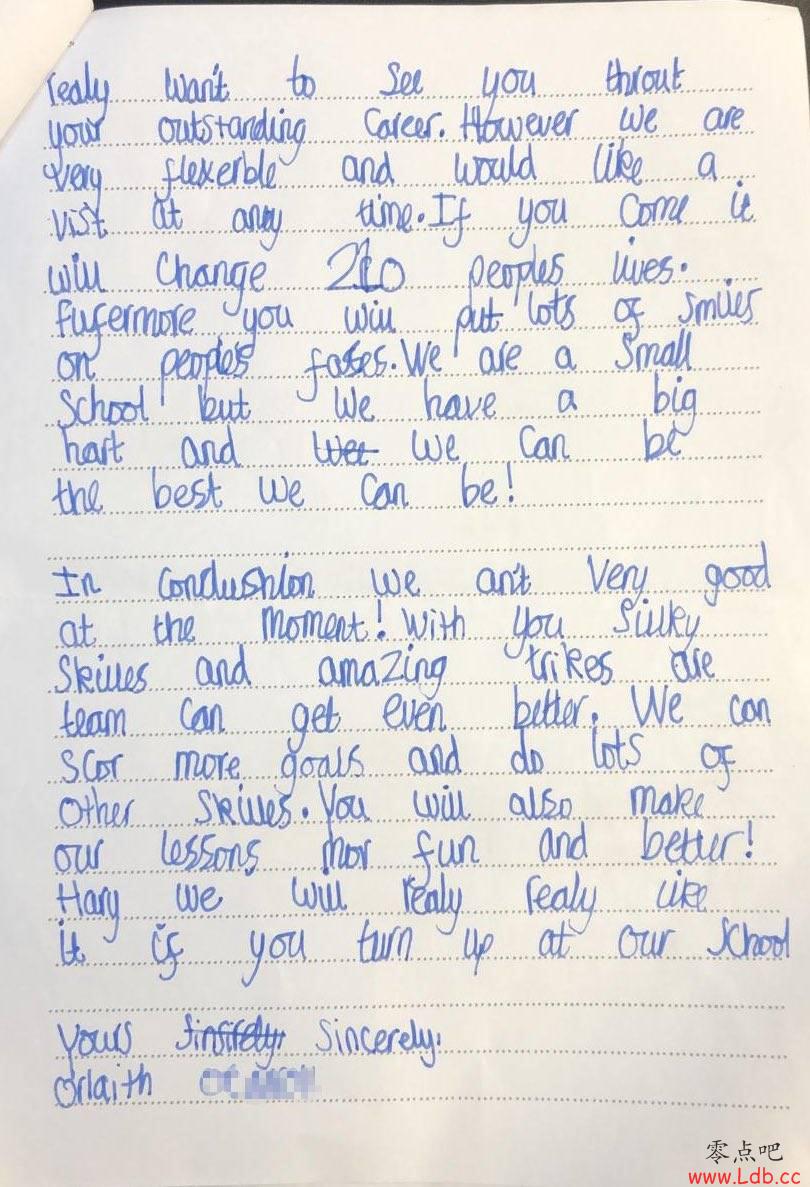 realy want to see you throut
your outstanding career. However we are
very flexerble and would like a
vist at any time. If you come it
will change 210 peoples lives.
fufermore you will put lots of smiles
on people's fases. We are a small
school but we have a big
hart and we can be
the best we can be!
In conclushion we an't very good
at the moment! With you silky
skilles and amazing trikes are
team can get even better. We can
scor more goals and do lots of
other skilles. You will also make
our lessons mor fun and better!
Hary we will realy realy like
it if you turn up at our school
Yours Sincerely.
Orlaith
零点吧
www.Ldb.cc